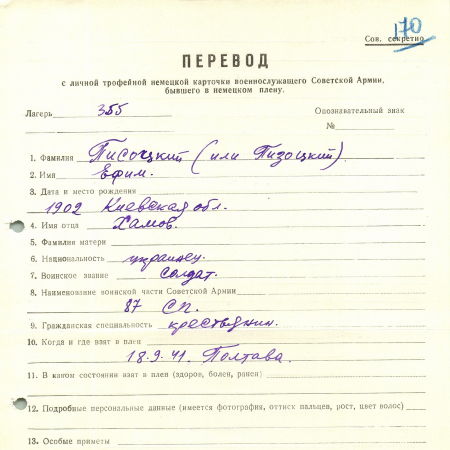 170
Сов. секретно
ПЕРЕВОД
с личной трофейной немецкой карточки военнослужащего Советской Армии,
бывшего в немецком плену.
Лагерь 355 Опознавательный знак
№
1. Фамилия Писоцкий (или Пизоцкий).
2. Имя Ефим.
3. Дата и место рождения
1902 Киевская обл.
4. Имя отца Хамов.
5. Фамилия матери
6. Национальность украинец.
7. Воинское звание солдат.
8. Наименование воинской части Советской Армии
87 СП.
9. Гражданская специальность крестьянин.
10. Когда и где взят в плен
18.9.41. Полтава.
11. В каком состоянии взят в плен (здоров, болен, ранен)
12. Подробные персональные данные (имеется фотография, оттиск пальцев, рост, цвет волос)
13. Особые приметы